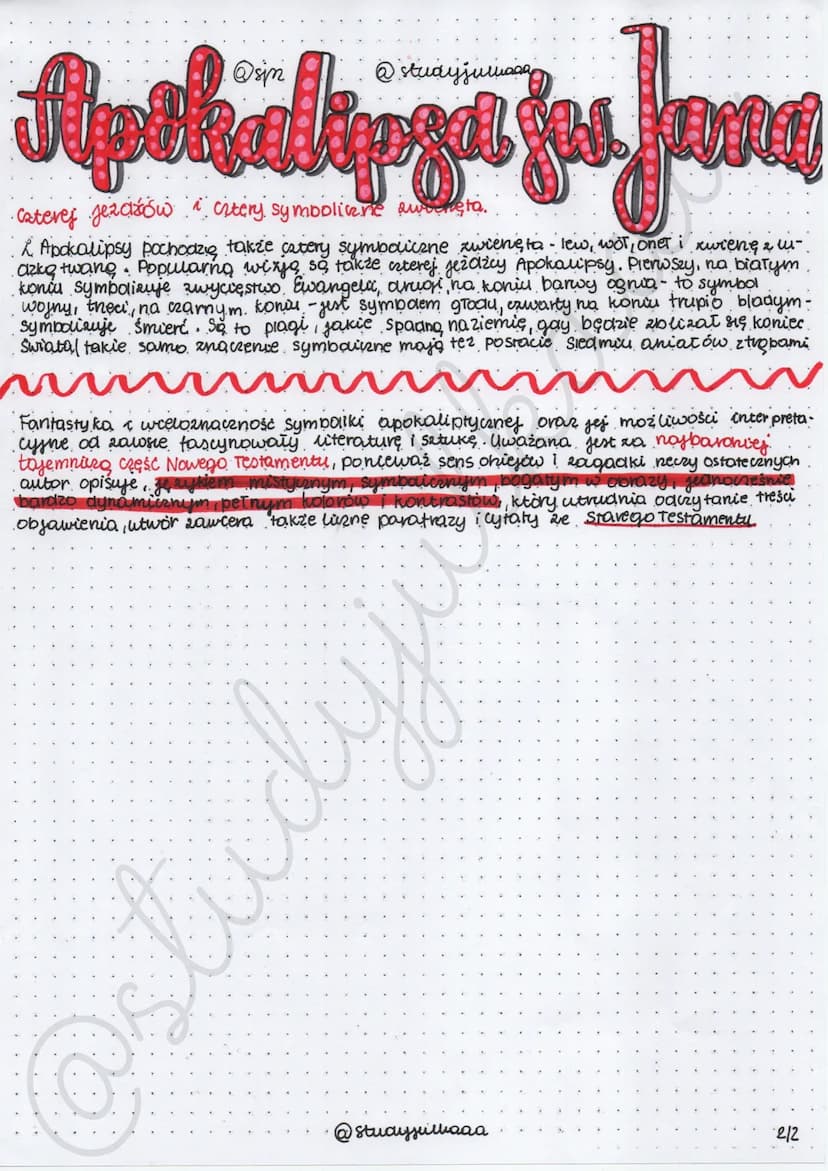 @sjn @studyjuliaaa
Apokalipsa św. Jana
Czterej jeźdźów i cztery symboliczne zwierzęta.
Z Apokalipsy pochodzą także cztery symboliczne zwierzęta - lew, wół, orzeł i zwierzę z lu-
dzką twarzą. Popularną wizją są także czterej jeźdźcy Apokalipsy. Pierwszy, na białym
koniu symbolizuje zwycięstwo Ewangelii, drugi, na koniu barwy ognia - to symbol
wojny, trzeci, na czarnym koniu - jest symbolem głodu, czwarty na koniu trupio bladym -
symbolizuje śmierć. Są to plagi, jakie spadną na ziemię, gdy będzie zbliżał się koniec
świata, takie samo znaczenie symboliczne mają też postacie siedmiu aniałów z trąbami
Fantastyka i wieloznaczność symboliki apokaliptycznej oraz jej możliwości interpreta-
cyjne od zawsze fascynowały literaturę i sztukę. Uważana jest za najbardziej
tajemniczą część Nowego Testamentu, ponieważ sens dziejów i zagadki rzeczy ostatecznych
autor opisuje, językiem mistycznym, symbolicznym, bogatym w obrazy, jednocześnie
bardzo dynamicznym, pełnym kolorów i kontrastów, który utrudnia odczytanie treści
objawienia, utwór zawiera także liczne parafrazy i cytaty ze Starego Testamentu
@studyjuliaaa
@studyjuliaaa 2/2